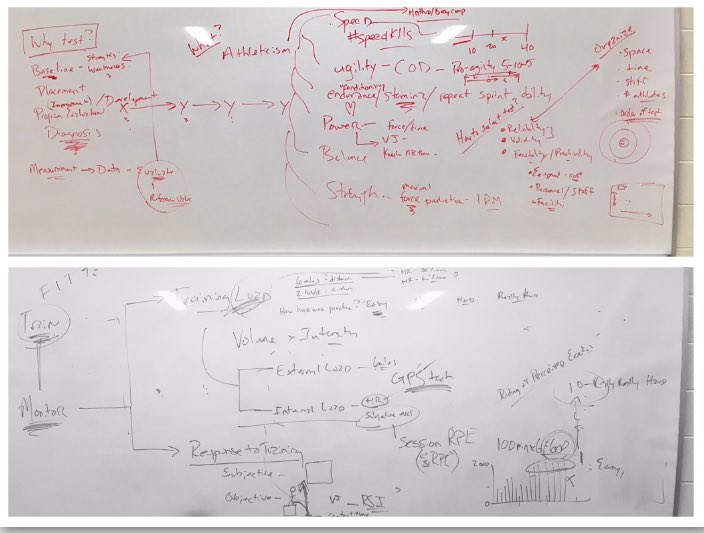 Why test?
Baseline - strengths
weaknesses
Placement
/Development
Diagnosis
Measurement → Data - Evaluate
Reference Value
What?
Athleticism
X → Y → Y → Y
Speed
#speedkills
10 20 x 40
agility - COD - Pro-agility 5-10-5
conditioning
endurance/stamina/repeat sprint ability
Power - force/time
VJ -
Balance
Strength - maximal
force production - 1RM
How to select test?
• Reliability
• Validity
• Feasibility/Practicality
• Equipment - cost
• Personnel/Staff
• Facility
Organize
• Space
• time
• staff
# athletes
• Order of test
FIT?:
Train
Monitor
Training Load
6 miles = distance
How hard was practice? Easy
Hard Really Hard
Volume x Intensity
External Load - 6 miles
GPS tech
Internal Load - HR
Session RPE
(sRPE)
Response to Training
Subjective -
Objective - VJ - RSI
Rating of Perceived Exertion
10 - Really Really Hard
100min x 6 = 600
2000
1 = Easy